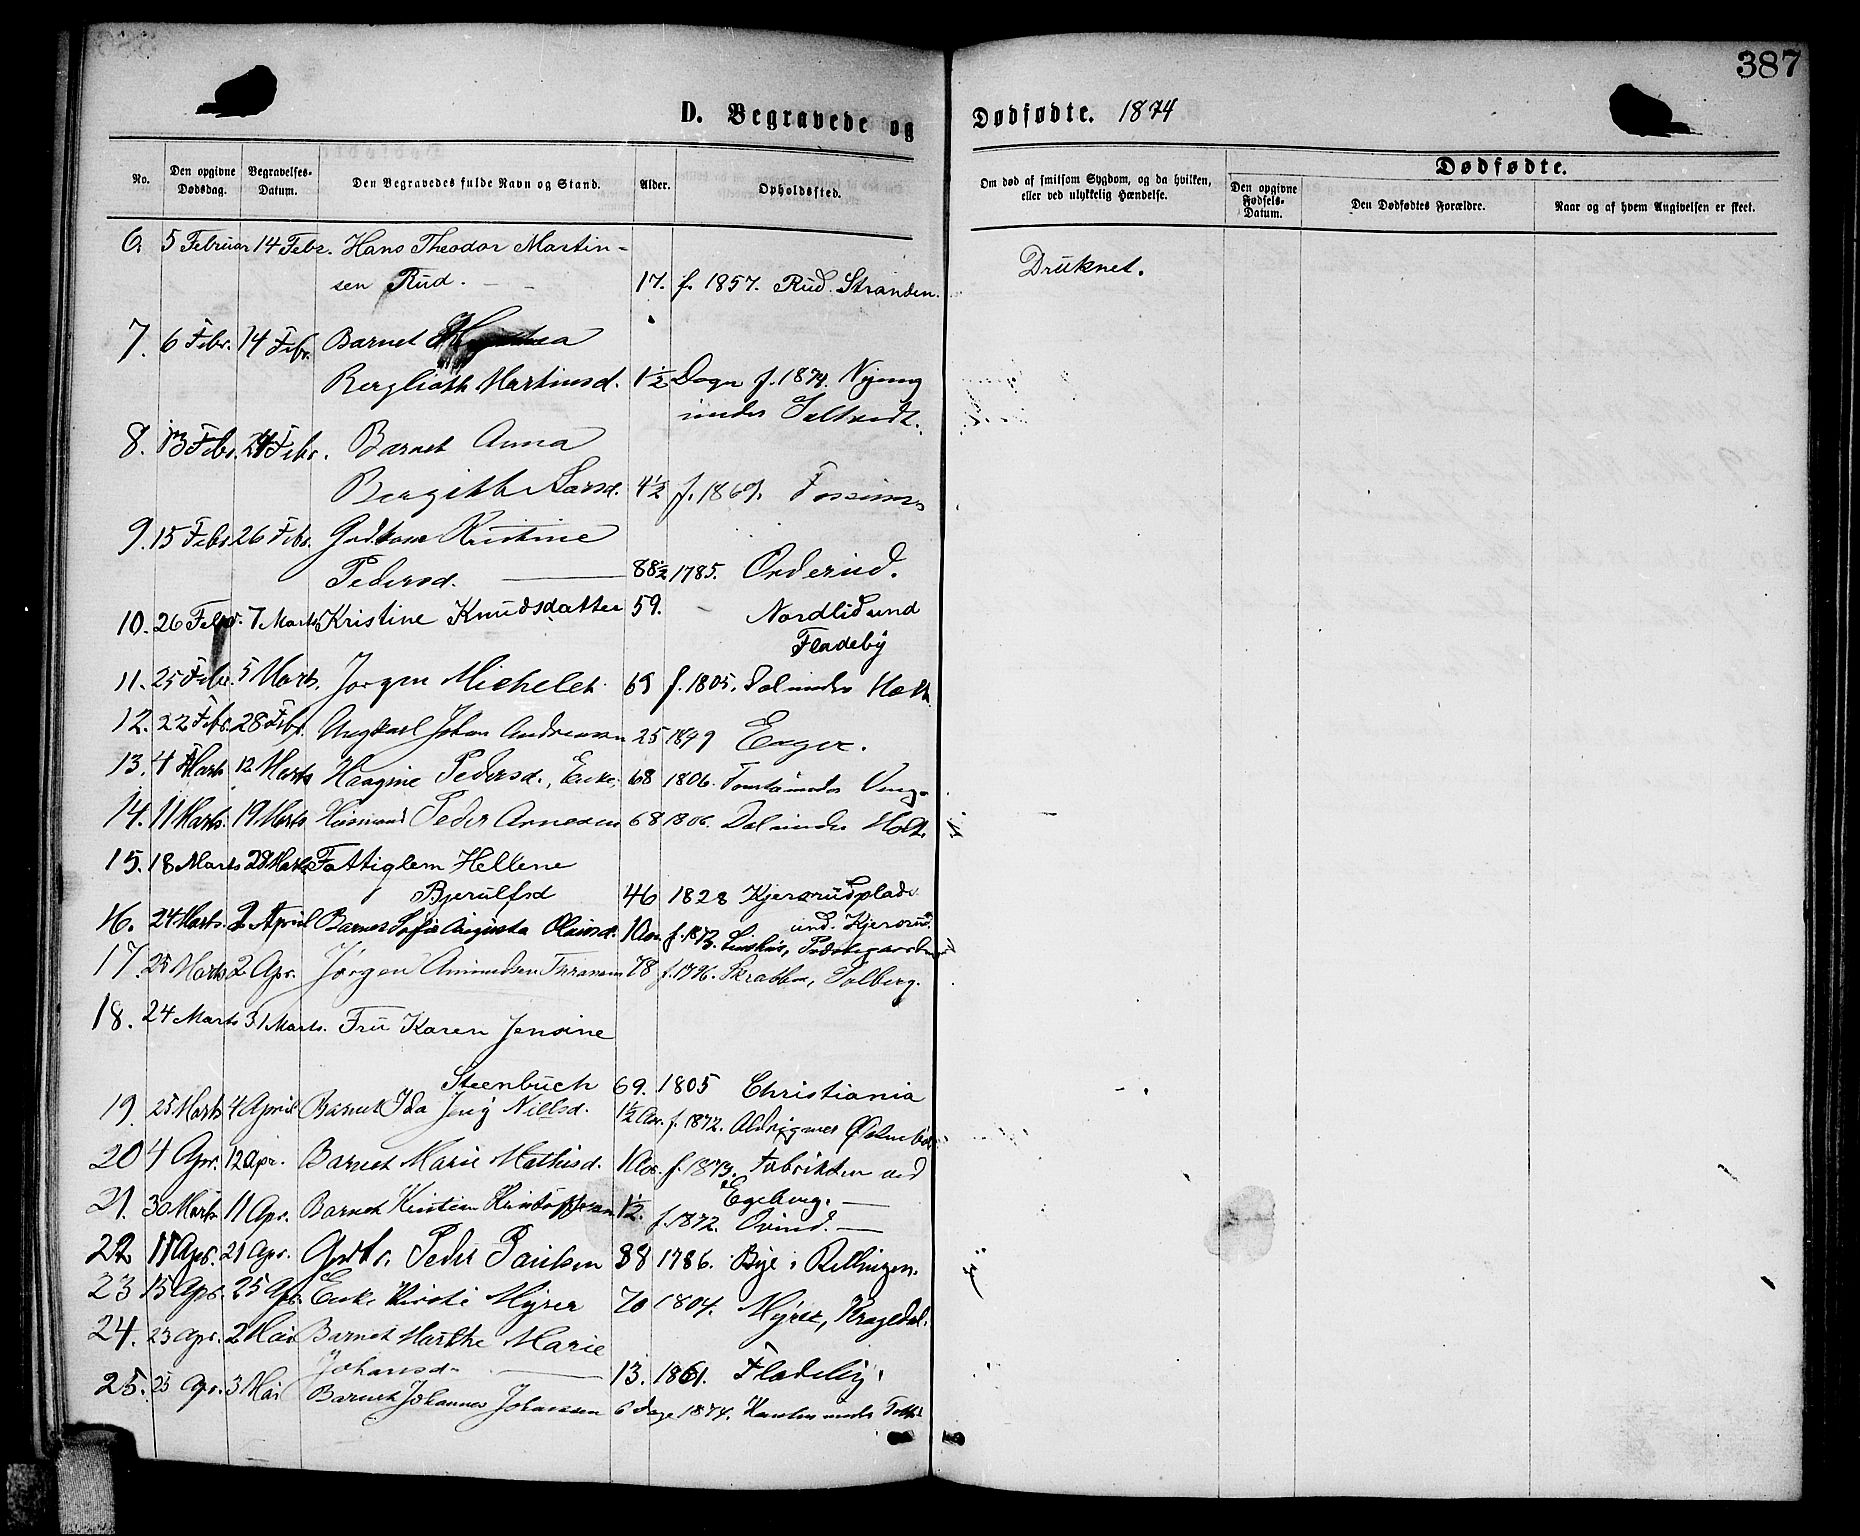 387
D. Begravede og Dødfødte. 1874
No. Den opgivne Dødsdag. Begravelses-Datum. Den Begravedes fulde Navn og Stand. Alder. Opholdssted. Om død af smitsom Sygdom, og da hvilken, eller ved ulykkelig Hændelse. Dødfødte. Den opgivne Fødsels-Datum. Den Dødfødtes Forældre. Naar og af hvem Angivelsen er skeet.
6. 5 Februar 14 Febr. Hans Theodor Martin-
sen Rud. 17. f. 1857. Rud. Stranden. Druknet.
7. 6 Febr. 14 Febr. Barnet
Berglioth Martinsd. 1½ Dage f. 1874. under
8. 13 Febr. 24 Febr. Barnet Anna
Bergithe Larsd. 4½ f. 1869.
9. 15 Febr. 26 Febr. Kristine
Pedersd. 88½ 1785. Orderud.
10. 26 Febr. 7 Marts Kristine Knudsdatter 59. Nordlid und
Fladeby
11. 25 Febr. 5 Marts. Jørgen Michelet 69 f. 1805. Dal under
12. 22 Febr. 28 Febr. Ungkarl Johan Andreasen 25 1849 Enger.
13. 4 Marts 12 Marts Pedersd., Enke, 68 1806.
14. 11 Marts. 19 Marts Husmand Peder Arnesen 68 1806. Dal under Holt.
15. 18 Marts 28 Marts Fattiglem Hellene
Bjerulfsd 46 1828 Kjersrudplads
und. Kjersrud.
16. 24 Marts. 2 April Barnet Sofie Augusta Olausd. 1 Aar f. 1873.
17. 25 Marts 2 Apr. Jørgen Amundsen 78 f. 1796. Skratten, Solberg.
18. 24 Marts 31 Marts. Fru Karen Jensine
Steenbuch 69. 1805 Christiania
19. 25 Marts 4 April Barnet Ida Jenny Nillsd. 1½ Aar. f. 1872.
20 4 Apr. 12 Apr. Barnet Marie Mathisd. 1 Aar. f. 1873. Fabrikken ved
Egeberg.
21. 30 Marts 11 Apr. Barnet Kristian Kristoffersen 1½. f. 1872.
22 11 Apr. 21 Apr. Peder Paulsen 88 1786. Bye i
23 15 Apr. 25 Apr. Enke Kirsti Myrer 70 1804. Myrer, Kragedal.
24. 23 Apr. 2 Mai Barnet Marthe Marie
Johansd. 13. 1861. Fladeby.
25. 25 Apr. 3 Mai Barnet Johannes Johansen 6 Dage 1874. under